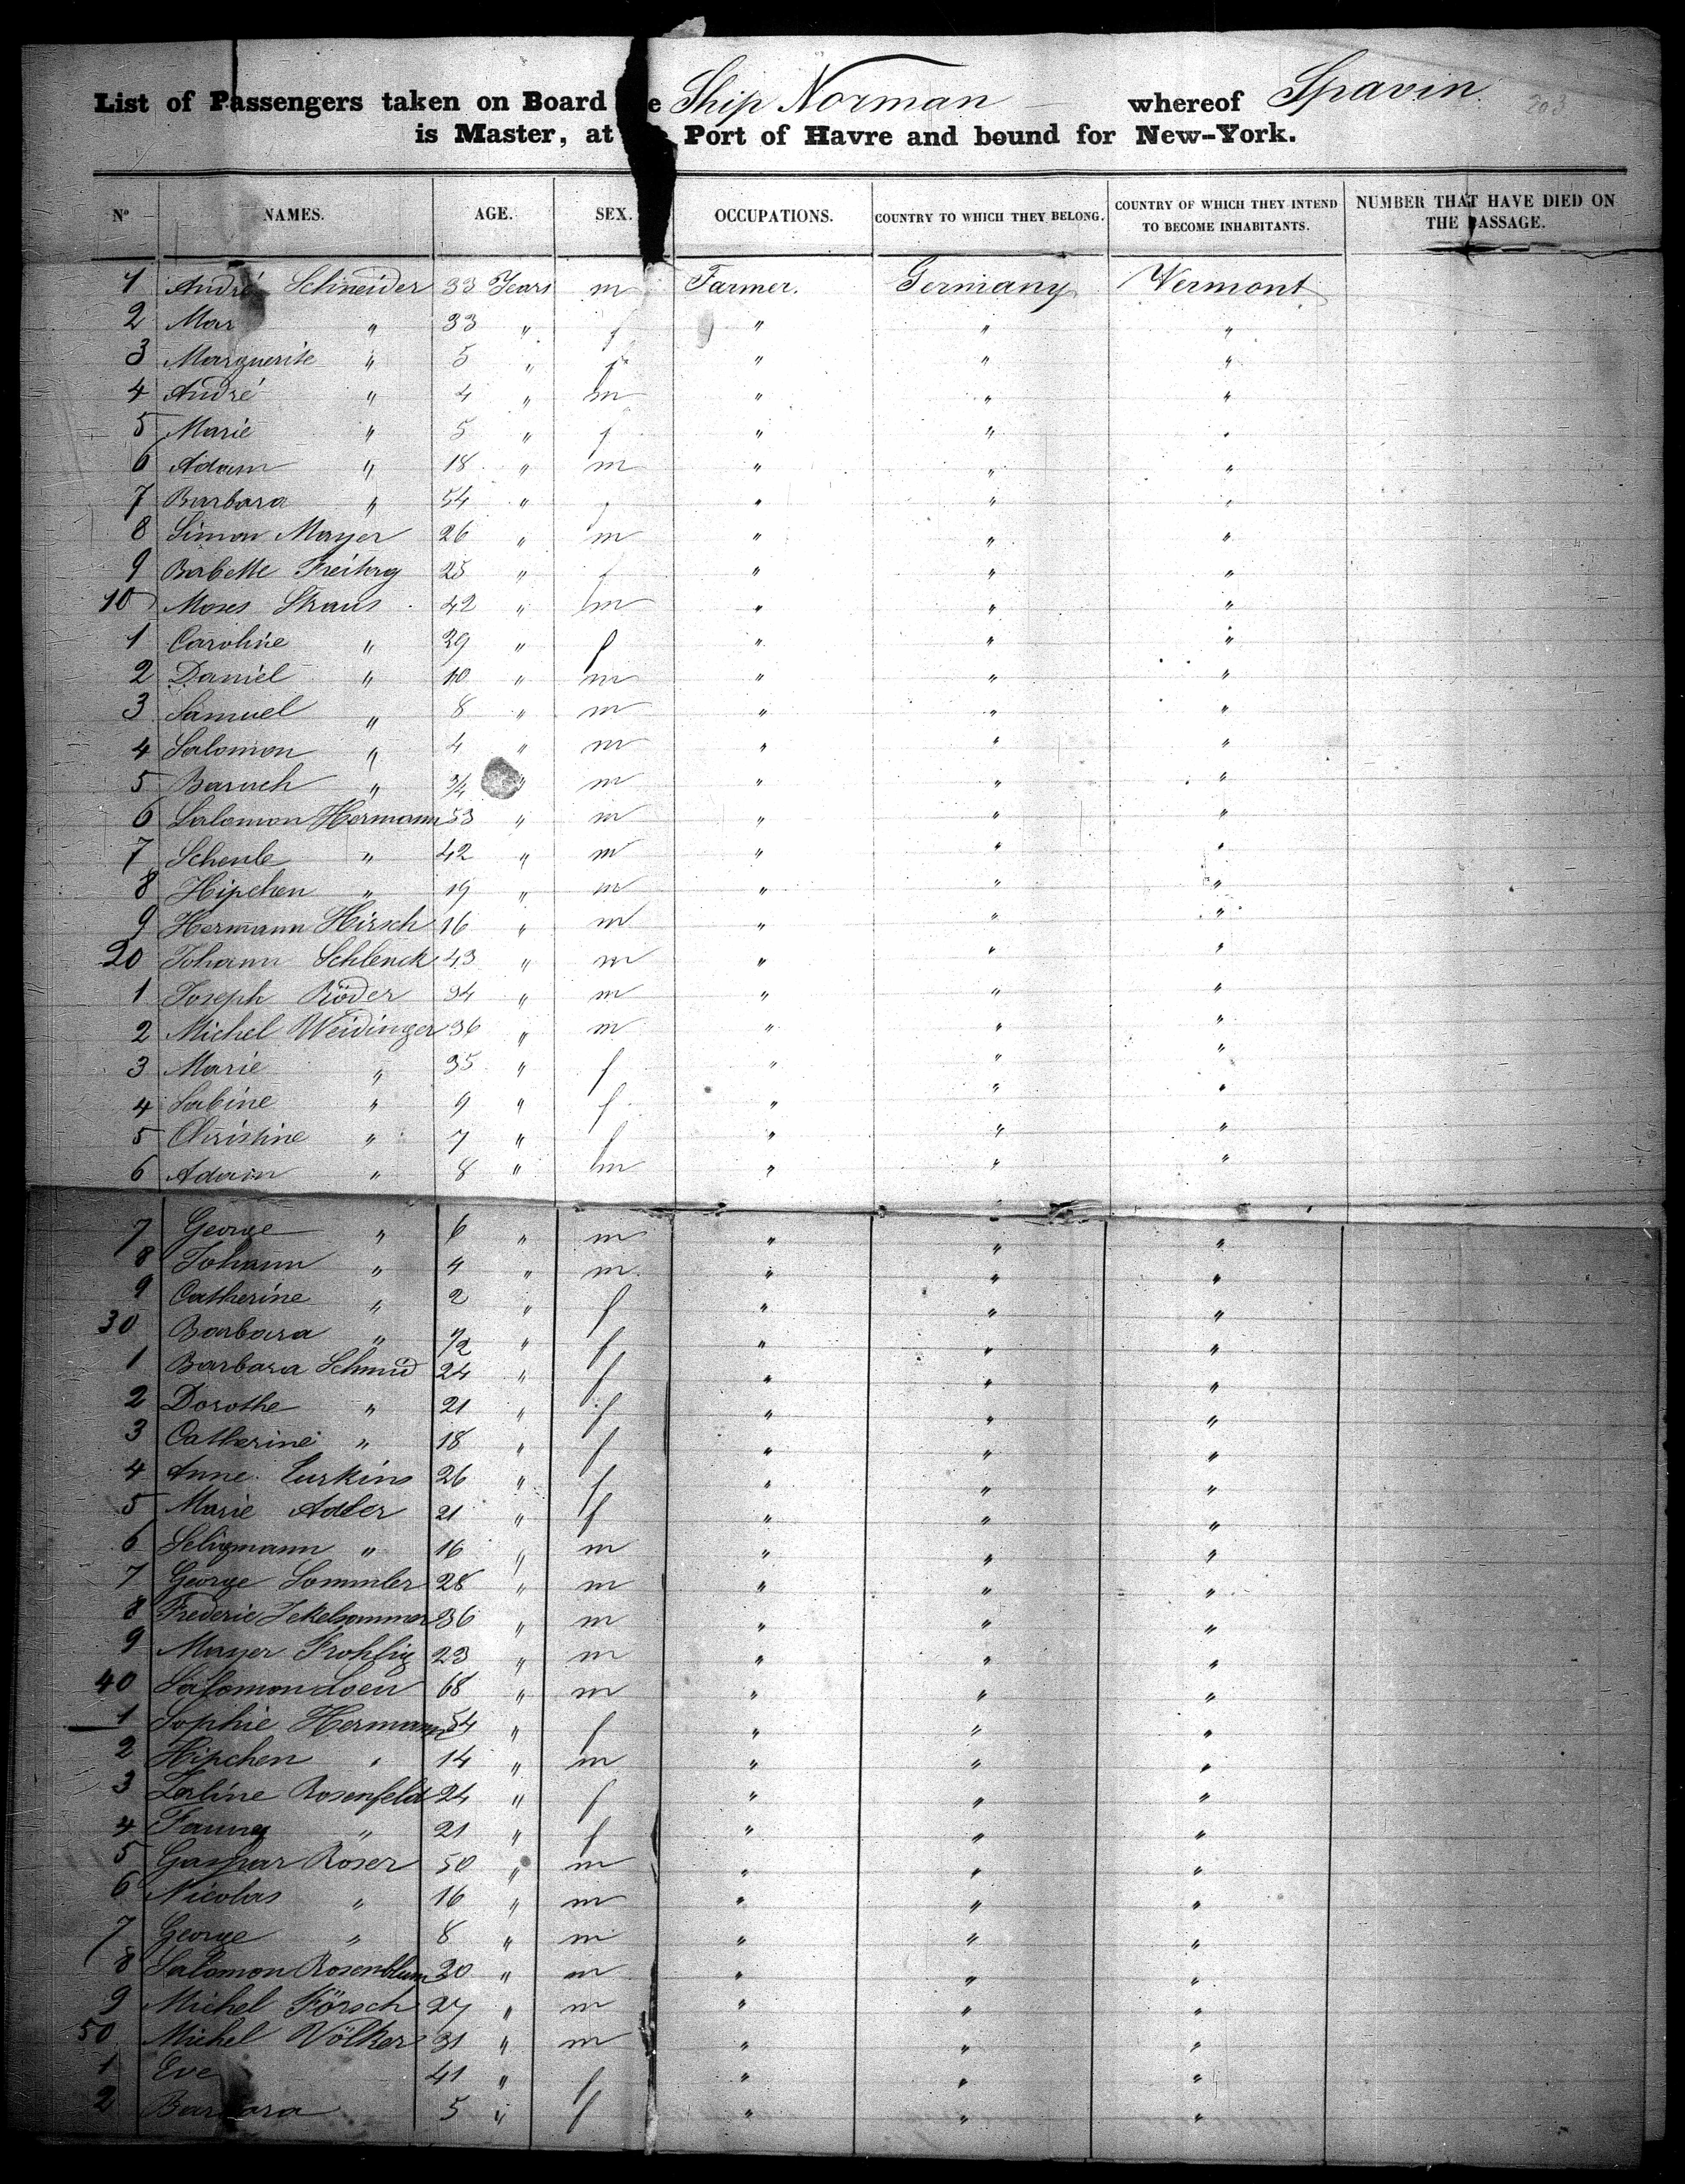 List of Passengers taken on Board e Ship Norman whereof Spavin 203
is Master, at Port of Havre and bound for New-York.
Nº NAMES. AGE. SEX. OCCUPATIONS. COUNTRY TO WHICH THEY BELONG. COUNTRY OF WHICH THEY INTEND TO BECOME INHABITANTS. NUMBER THAT HAVE DIED ON THE PASSAGE.
1 André Schneider 33 Years m Farmer. Germany Vermont
2 Mar " 33 " f " " "
3 Marguerite " 5 " f " " "
4 André " 4 " m " " "
5 Marie " 5 " f " " "
6 Adam " 18 " m " " "
7 Barbara " 54 " f " " "
8 Simon Mayer 26 " m " " "
9 Babette Freitag 25 " f " " "
10 Moses Straus 42 " m " " "
1 Caroline " 39 " f " " "
2 Daniel " 10 " m " " "
3 Samuel " 8 " m " " "
4 Salomon " 4 " m " " "
5 Baruch " 3/4 " m " " "
6 Salomon Hermann 53 " m " " "
7 Schenle " 42 " m " " "
8 Hipchen " 19 " m " " "
9 Hermann Hirsch 16 " m " " "
20 Johann Schlenck 43 " m " " "
1 Joseph Röder 34 " m " " "
2 Michel Weidinger 36 " m " " "
3 Marie " 35 " f " " "
4 Sabine " 9 " f " " "
5 Christine " 7 " f " " "
6 Adam " 8 " m " " "
7 George " 6 " m " " "
8 Johann " 4 " m " " "
9 Catherine " 2 " f " " "
30 Barbara " 1/2 " f " " "
1 Barbara Schmid 24 " f " " "
2 Dorothe " 21 " f " " "
3 Catherine " 18 " f " " "
4 Anne Lurkins 26 " f " " "
5 Marie Adler 21 " f " " "
6 Seligmann " 16 " m " " "
7 George Sommler 28 " m " " "
8 Frederic Jekelsammer 36 " m " " "
9 Mayer Frohlig 23 " m " " "
40 Salomon Loew 68 " m " " "
1 Sophie Hermann 54 " f " " "
2 Hipchen " 14 " m " " "
3 Zerline Rosenfeld 24 " f " " "
4 Fanny " 21 " f " " "
5 Gaspar Roser 50 " m " " "
6 Nicolas " 16 " m " " "
7 George " 8 " m " " "
8 Salomon Rosenblum 20 " m " " "
9 Michel Försch 27 " m " " "
50 Michel Völker 31 " m " " "
1 Eve 41 " f " " "
2 Barbara 5 " f " " "